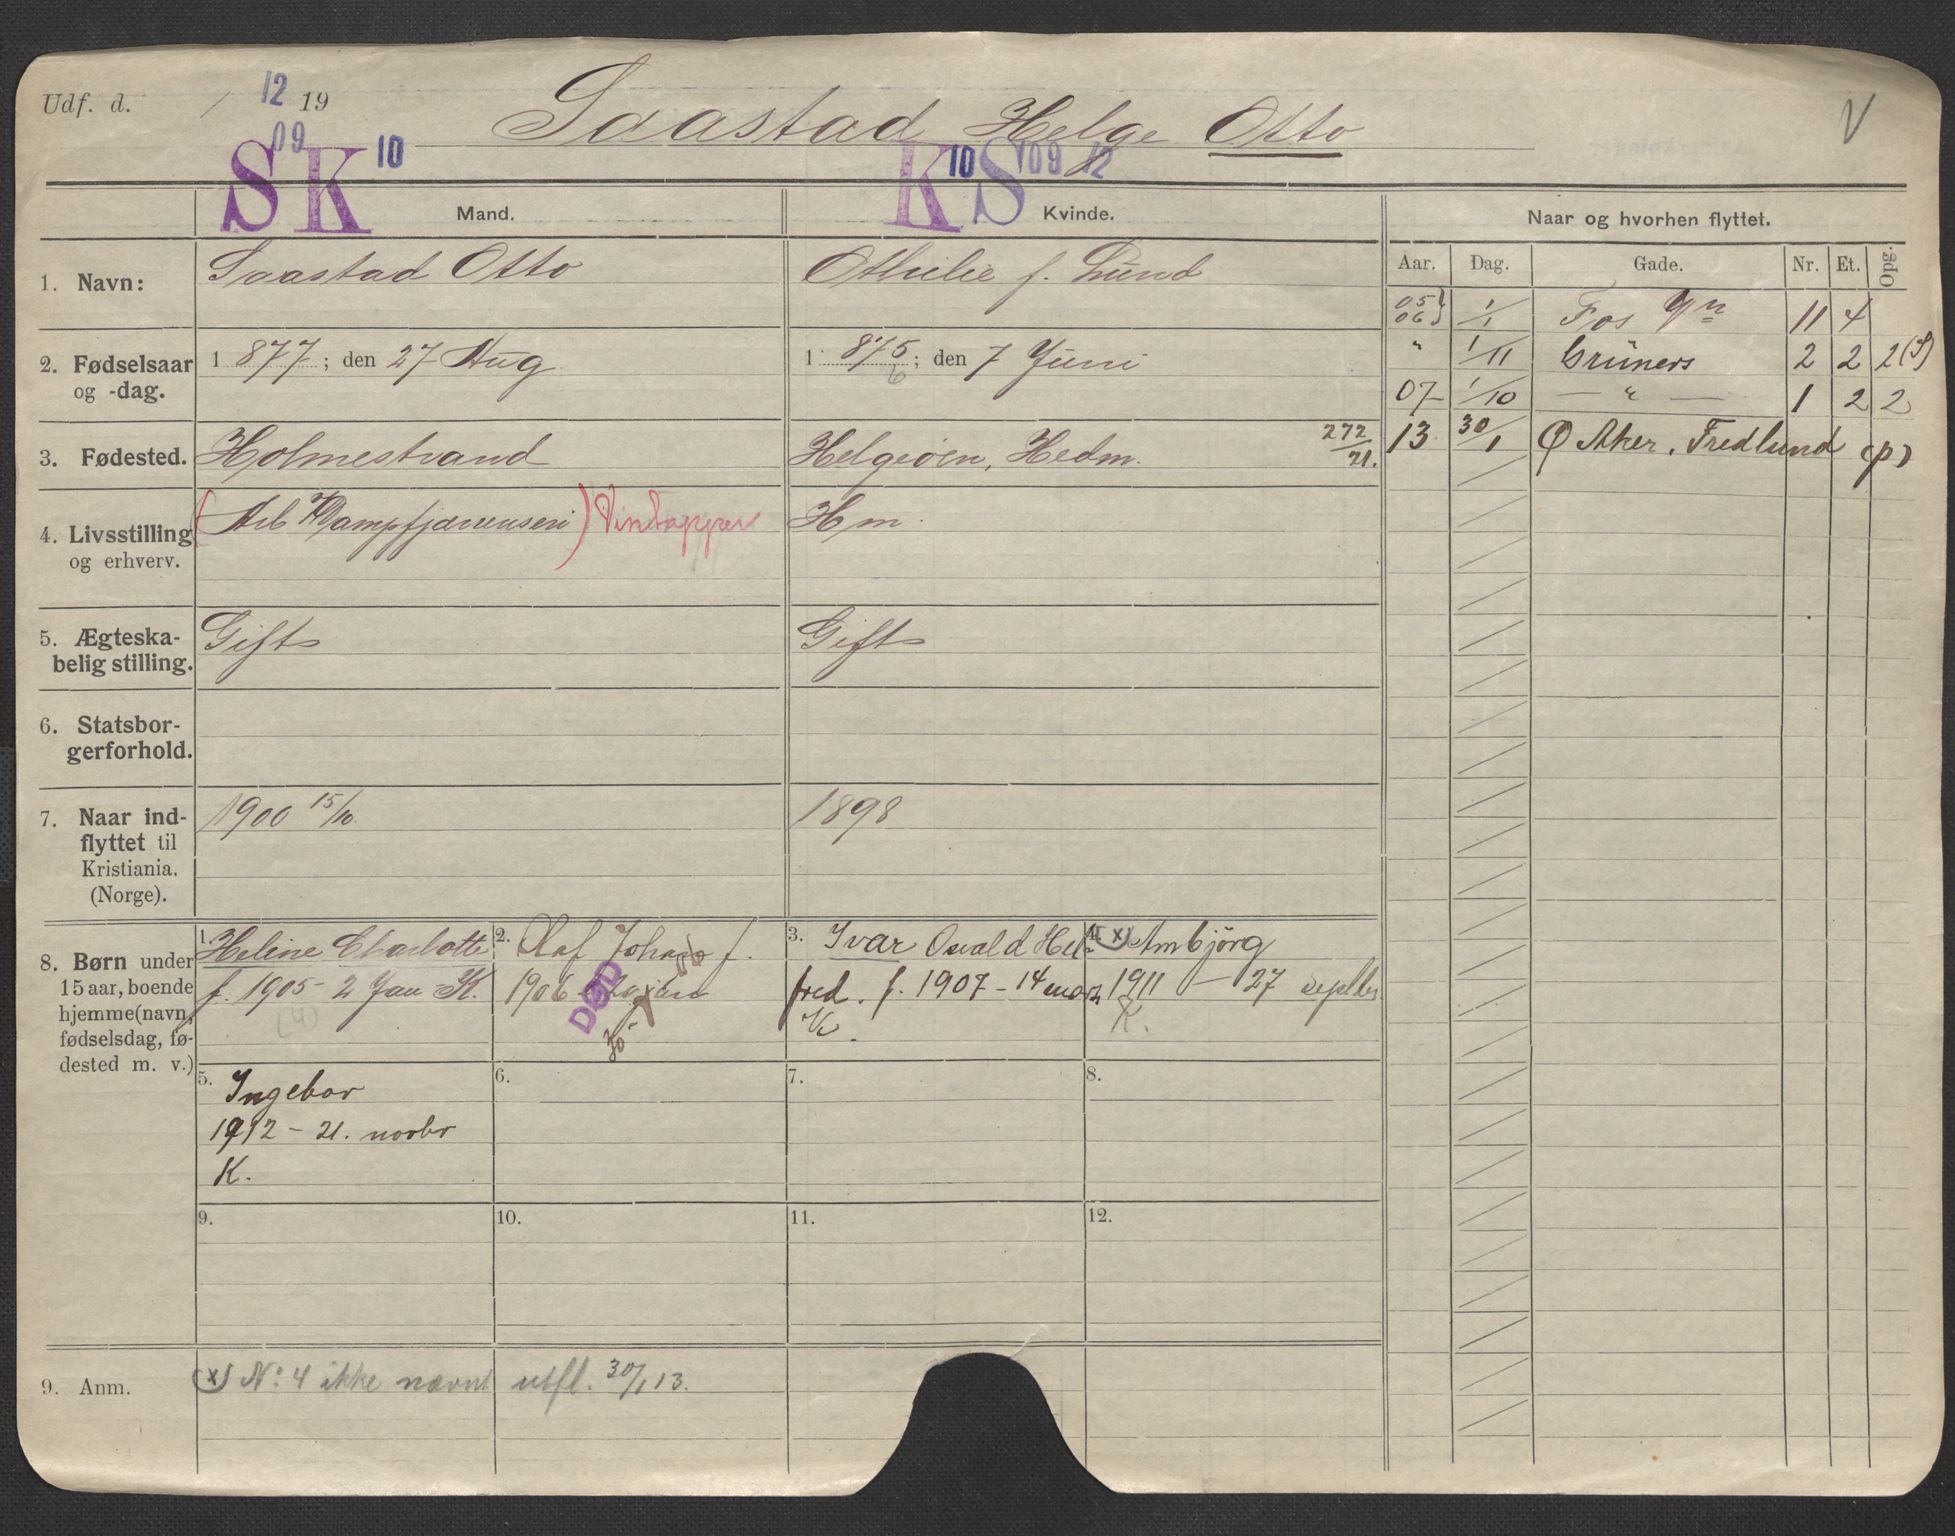 Udf. d. / 12 19
09
Saastad Helge Otto
V
S K 10
K 10 S 09 12
Mand.
Kvinde.
Naar og hvorhen flyttet.
Aar. Dag. Gade. Nr. Et. Opg.
1. Navn:
Saastad Otto
Othilie f. Lund
05 06 } 1/1 Fos Gn 11 4
" 1/11 Grüners 2 2 2 (S)
07 1/10 — " — 1 2 2
13 30/1 Ø Aker. Fredlund (p)
2. Fødselsaar og -dag.
1 877; den 27 Aug
1 875; den 7 Juni
6
3. Fødested.
Holmestrand
Helgeöen, Hedm. 272/21.
4. Livsstilling og erhverv.
(Arb Dampfjærenseri) Vintapper
Hm.
5. Ægteskabelig stilling.
Gift
Gift
6. Statsborgerforhold.
7. Naar indflyttet til Kristiania. (Norge).
1900 15/10.
1898
8. Børn under 15 aar, boende hjemme (navn, fødselsdag, fødested m. v.)
1. Heline Charlotte
f. 1905 - 2 Jan K.
(4)
2. Olaf Johan f.
1906
DØD
3. Ivar Osvald Helfred. f. 1907 - 14 marz
K.
4. (x) Ambjörg
1911 — 27 septbr
K.
5. Ingebor
1912 - 21. novbr
K.
6.
7.
8.
9.
10.
11.
12.
9. Anm.
(x) No 4 ikke nævnt utfl. 30/1 13.